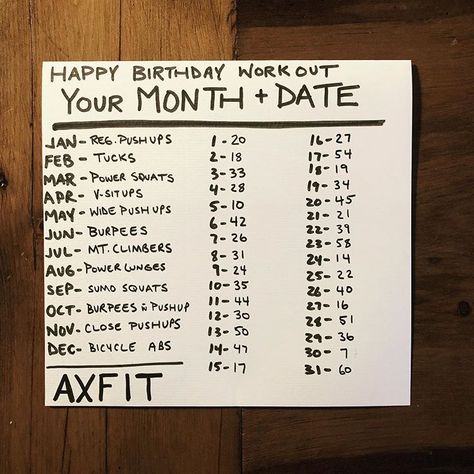 HAPPY BIRTHDAY WORKOUT
YOUR MONTH + DATE
JAN- REG. PUSHUPS
FEB - TUCKS
MAR- POWER SQUATS
APR- V-SITUPS
MAY- WIDE PUSHUPS
JUN- BURPEES
JUL- MT. CLIMBERS
AUG- POWER LUNGES
SEP- SUMO SQUATS
OCT- BURPEES PUSHUP
NOV- CLOSE PUSHUPS
DEC- BICYCLE ABS
1 - 20
2 - 18
3 - 33
4 - 28
5 - 10
6 - 42
7 - 26
8 - 31
9 - 24
10 - 35
11 - 44
12 - 30
13 - 50
14 - 47
15 - 17
16 - 27
17 - 54
18 - 19
19 - 34
20 - 45
21 - 21
22 - 39
23 - 58
24 - 14
25 - 22
26 - 40
27 - 16
28 - 51
29 - 36
30 - 7
31 - 60
AXFIT